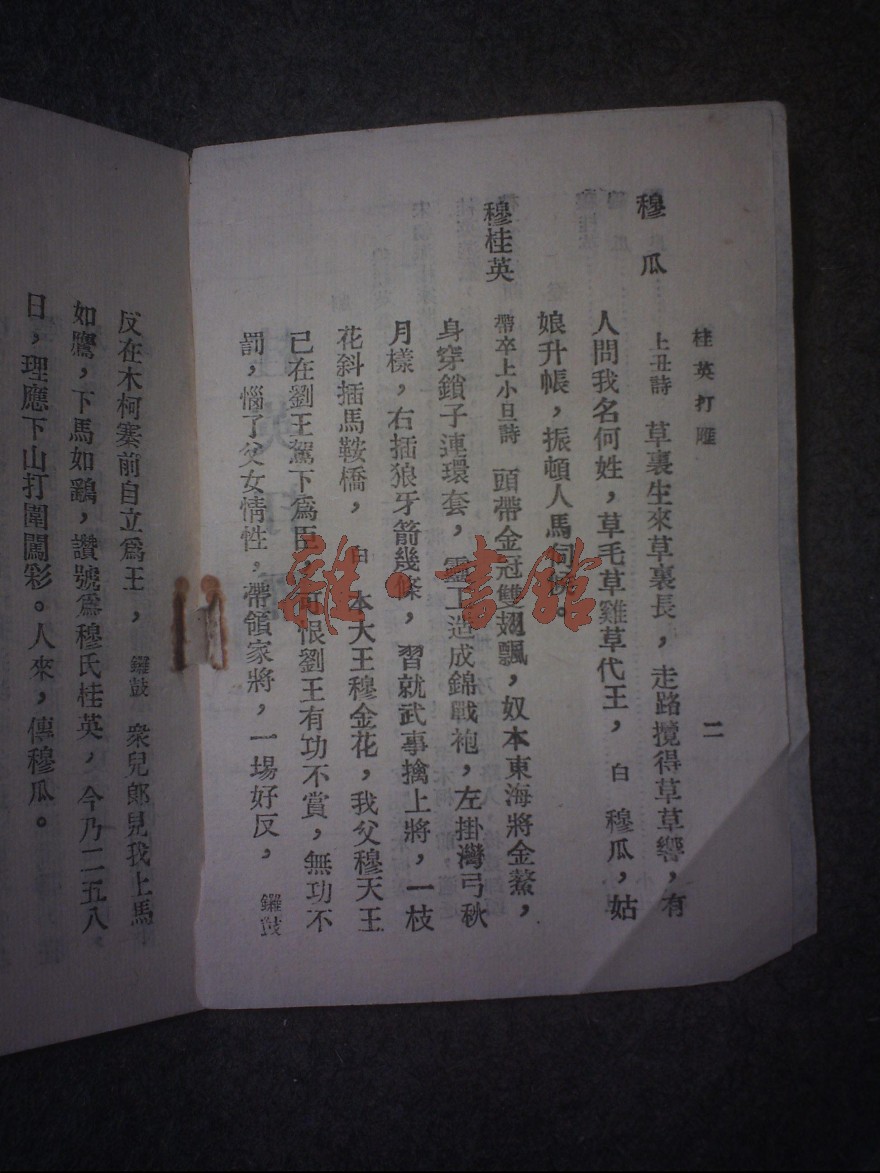 桂英打雁
二
穆瓜
上丑詩 草裏生來草裏長，走路攪得草草響，有
人問我名何姓，草毛草雞草代王，白 穆瓜，姑
娘升帳，振頓人馬伺候。
穆桂英
帶卒上小旦詩 頭帶金冠雙翅飄，奴本東海將金鰲，
身穿鎖子連環套，靈工造成錦戰袍，左掛灣弓秋
月樣，右插狼牙箭幾條，習就武事擒上將，一枝
花斜插馬鞍橋，白 本大王穆金花，我父穆天王
已在劉王駕下爲臣，可恨劉王有功不賞，無功不
罰，惱了父女情性，帶領家將，一場好反，鑼鼓
反在木柯寨前自立爲王，鑼鼓 衆兒郎見我上馬
如鷹，下馬如鷂，讚號爲穆氏桂英，今乃二五八
日，理應下山打圍闖彩。人來，傳穆瓜。
雜·書館